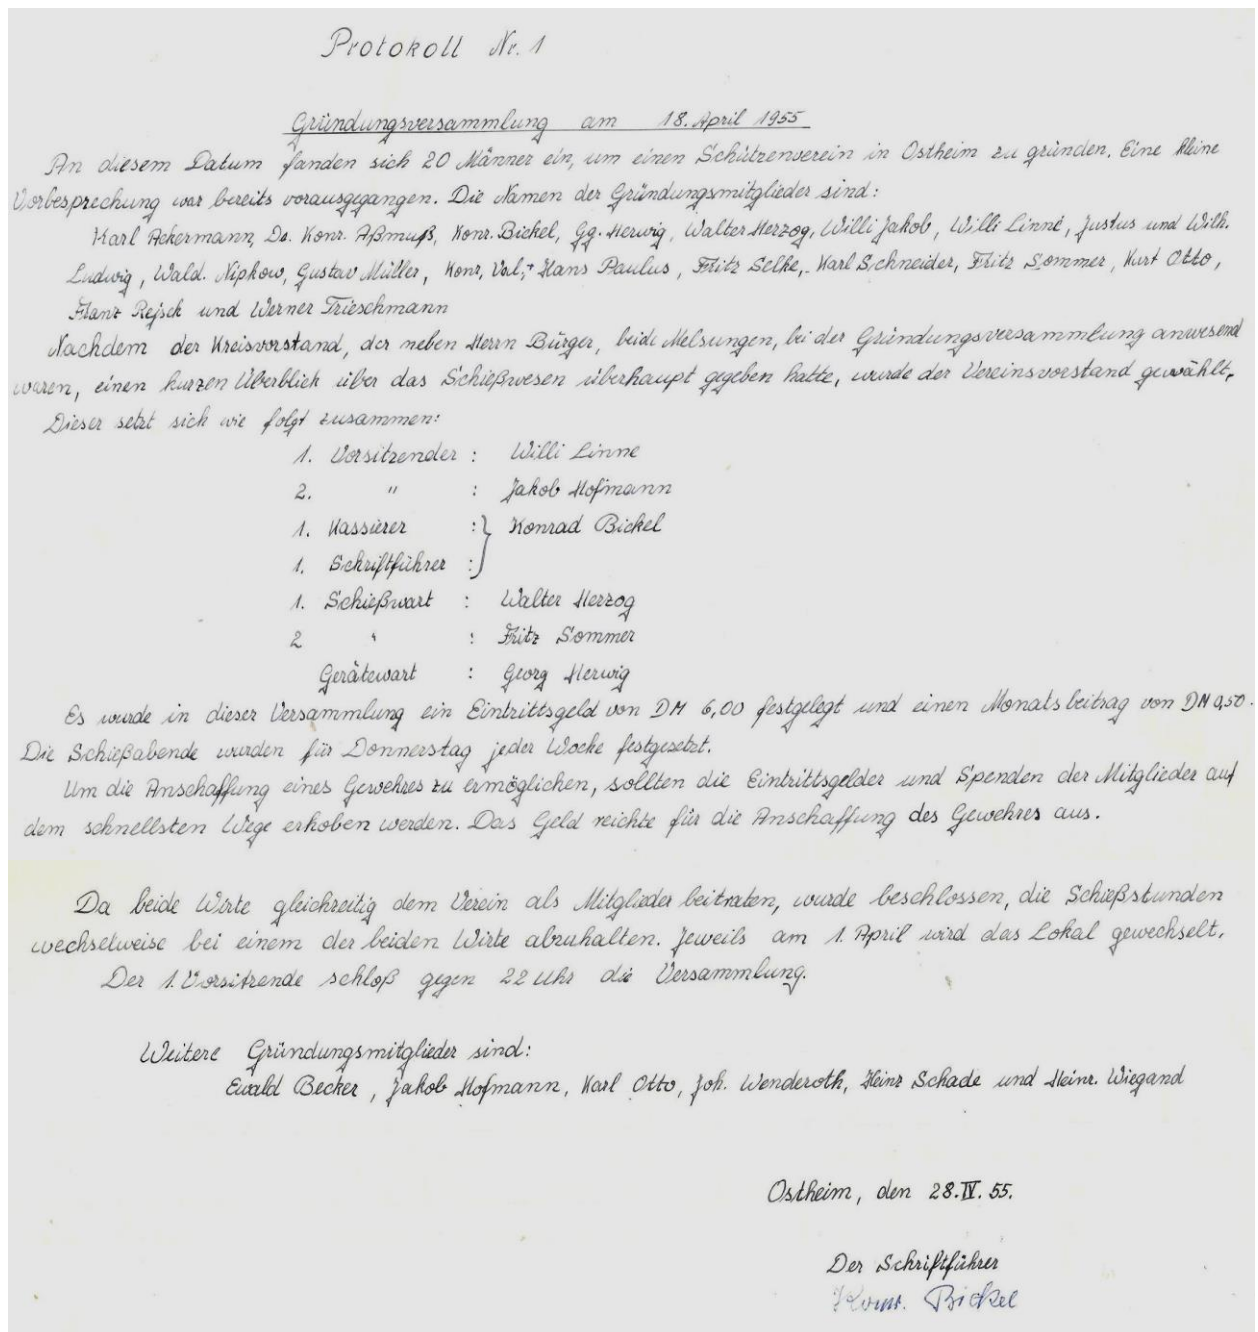 Protokoll Nr. 1
Gründungsversammlung am 18. April 1955
An diesem Datum fanden sich 20 Männer ein, um einen Schützenverein in Ostheim zu gründen. Eine kleine
Vorbesprechung war bereits vorausgegangen. Die Namen der Gründungsmitglieder sind:
Karl Ackermann, Do. Konr. Aßmuß, Konr. Bickel, Gg. Herwig, Walter Herzog, Willi Jakob, Willi Linne, Justus und Wilh.
Ludwig, Wald. Nipkow, Gustav Müller, Konr, Val, + Hans Paulus, Fritz Selke, Karl Schneider, Fritz Sommer, Kurt Otto,
Franz Rejsek und Werner Trieschmann
Nachdem der Kreisvorstand, der neben Herrn Bürger, beide Melsungen, bei der Gründungsversammlung anwesend
waren, einen kurzen Überblick über das Schießwesen überhaupt gegeben hatte, wurde der Vereinsvorstand gewählt.
Dieser setzt sich wie folgt zusammen:
1. Vorsitzender : Willi Linne
2. " : Jakob Hofmann
1. Kassierer :} Konrad Bickel
1. Schriftführer :
1. Schießwart : Walter Herzog
2 " : Fritz Sommer
Gerätewart : Georg Herwig
Es wurde in dieser Versammlung ein Eintrittsgeld von DM 6,00 festgelegt und einen Monatsbeitrag von DM 0,50.
Die Schießabende wurden für Donnerstag jeder Woche festgesetzt.
Um die Anschaffung eines Gewehres zu ermöglichen, sollten die Eintrittsgelder und Spenden der Mitglieder auf
dem schnellsten Wege erhoben werden. Das Geld reichte für die Anschaffung des Gewehres aus.
Da beide Wirte gleichzeitig dem Verein als Mitglieder beitraten, wurde beschlossen, die Schießstunden
wechselweise bei einem der beiden Wirte abzuhalten. Jeweils am 1. April wird das Lokal gewechselt.
Der 1. Vorsitzende schloß gegen 22 Uhr die Versammlung.
Weitere Gründungsmitglieder sind:
Ewald Becker, Jakob Hofmann, Karl Otto, Joh. Wenderoth, Heinz Schade und Heinr. Wiegand
Ostheim, den 28. IV. 55.
Der Schriftführer
Konr. Bickel